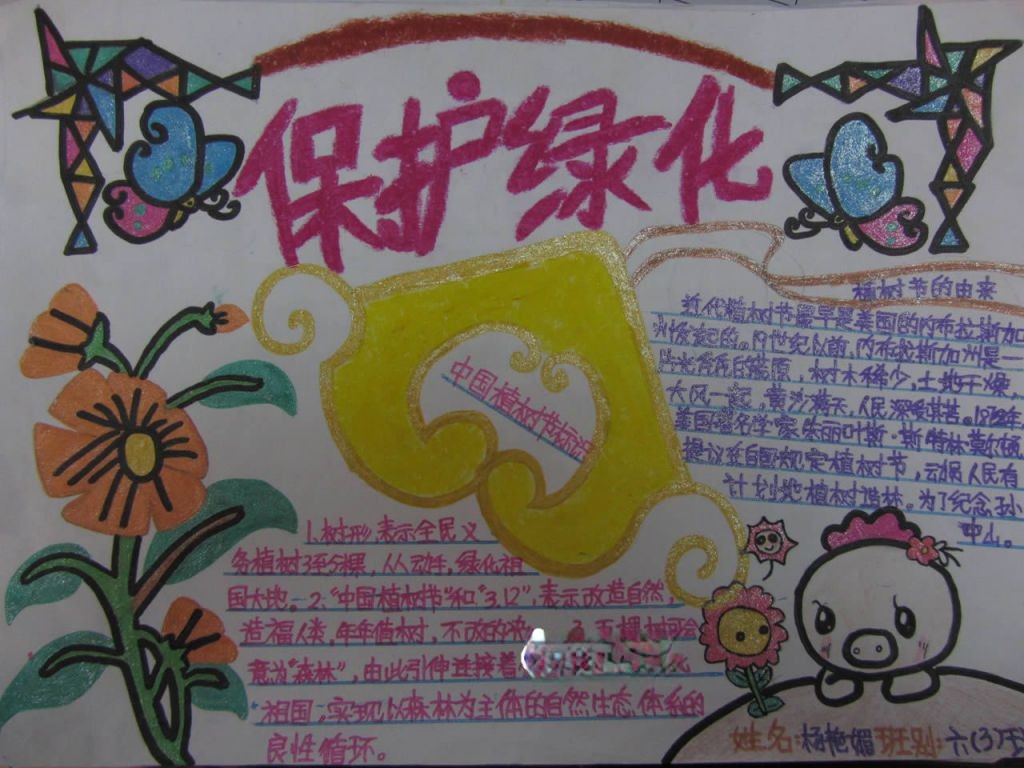 保护绿化
中国植树节标识
植树节的由来
近代植树节最早是美国的内布拉斯加
州发起的。19世纪以前,内布拉斯加州是一
片光秃秃的荒原,树木稀少,土地干燥,
大风一起,黄沙满天,人民深受其苦。1872年,
美国著名学家朱丽叶斯·斯特林·莫尔顿
提议在自国规定植树节,动员人民有
计划地植树造林。为了纪念孙
中山。
1、树形表示全民义
务植树3至5棵,人人动手,绿化祖
国大地。2、"中国植树节"和"3.12",表示改造自然,
造福人类,年年值树,不改的决 五棵树可会
意为"森林",由此引伸连接着
祖国,实现以森林为主体的自然生态体系的
良性循环。
姓名:杨艳媚 班别:六(3)班